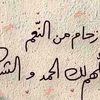 زحام من النعم
اللهم لك الحمد و الشكر